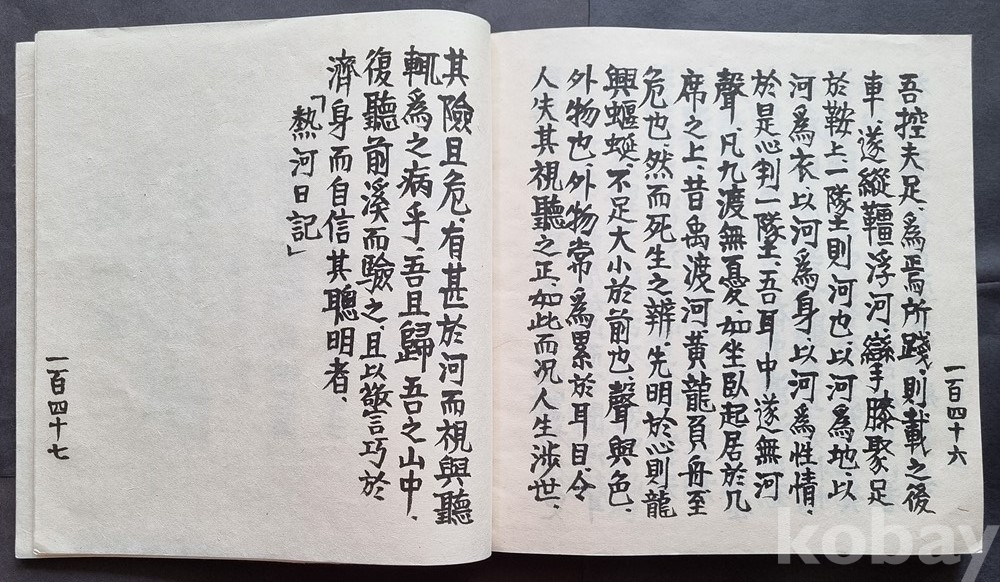 吾控夫足、爲焉所踐、則載之後
車、遂縱鞚浮河、攣膝聚足
於鞍上、一墜則河也、以河爲地、以
河爲衣、以河爲身、以河爲性情、
於是心判一墜、吾耳中遂無河
聲、凡九渡無憂、如坐臥起居於几
席之上、昔禹渡河、黃龍負舟至
危也、然而死生之辨、先明於心則龍
興蝘蜓、不足大小於前也聲與色、
外物也外物常爲累於耳目、令
人失其視聽之正、如此而況人生涉世、
一百四十六
其險且危、有甚於河而視與聽
輒爲之病乎、吾且歸吾之山中、
復聽前溪而驗之、且以警言巧於
濟身而自信其聰明者、
「熱河日記」
一百四十七
kobay